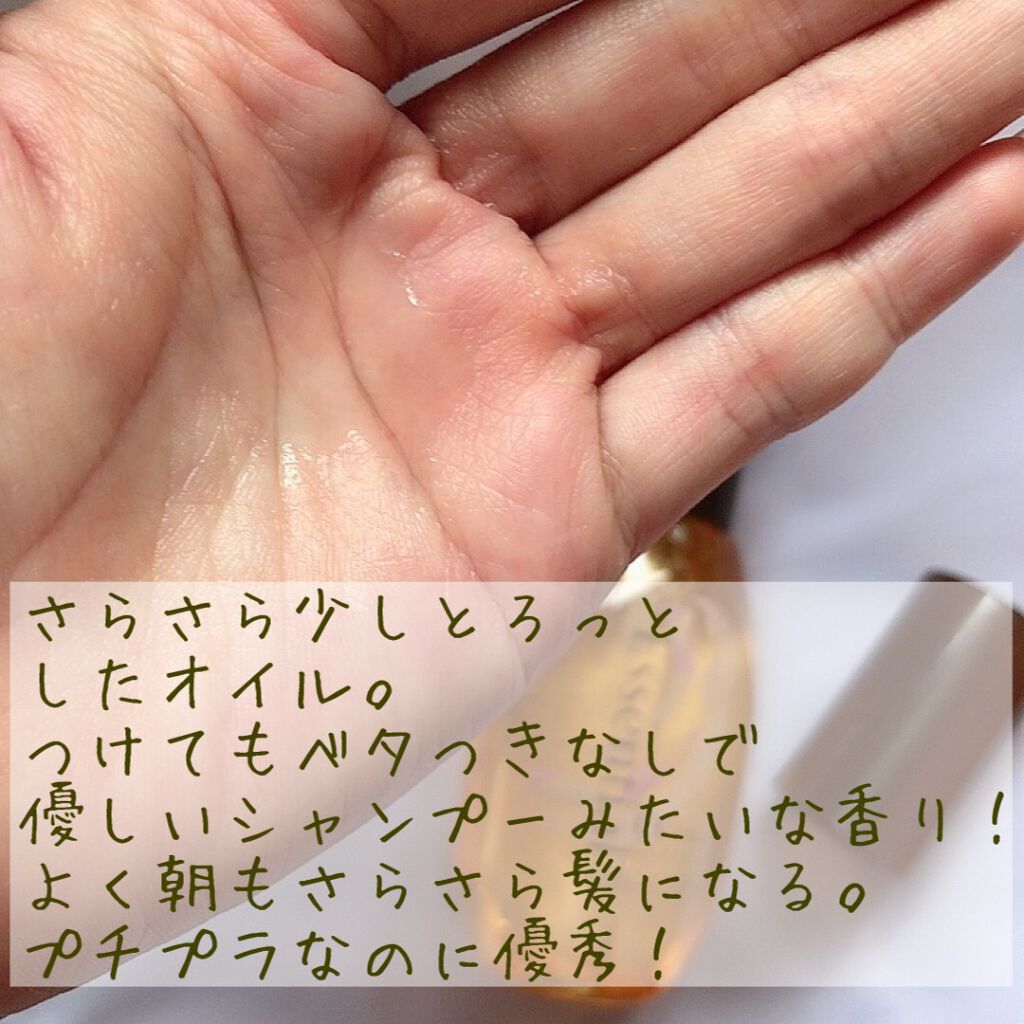 さらさら少しとろっと
したオイル。
つけてもベタつきなしで
優しいシャンプーみたいな香り！
よく朝もさらさら髪になる。
プチプラなのに優秀！